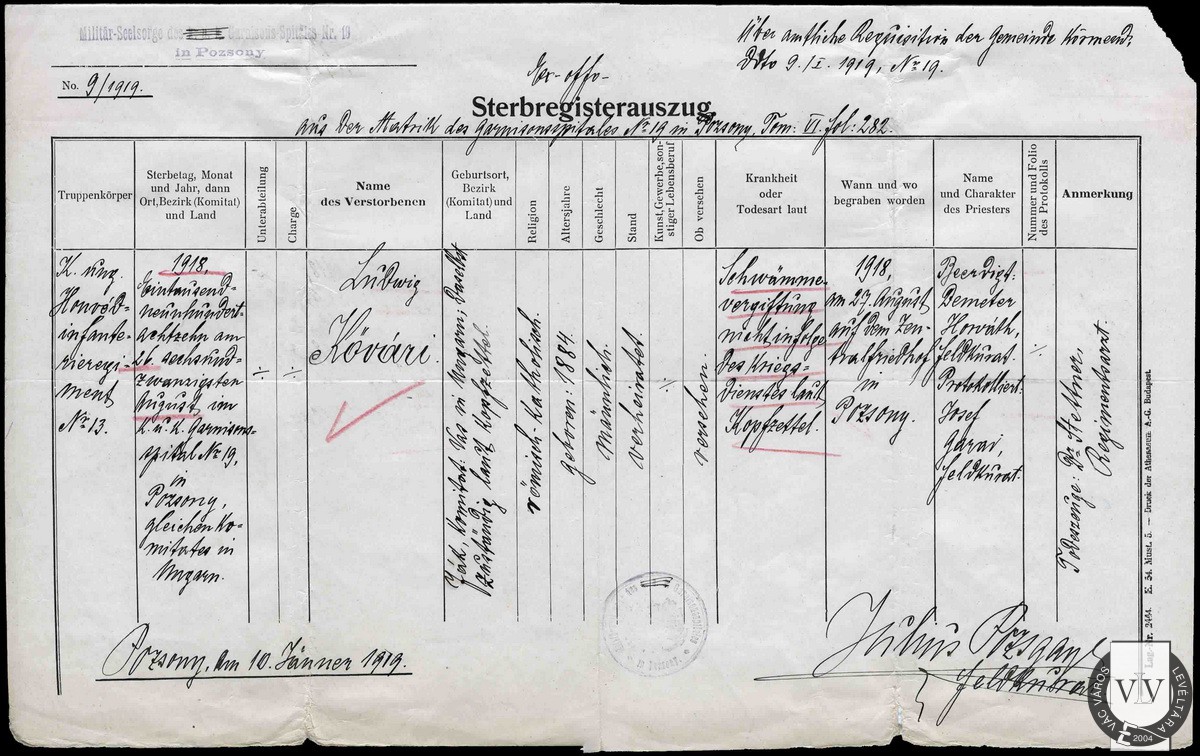 Militär-Seelsorge des Garnisons-Spitales Nr. 19
in Pozsony
No. 9/1919.
Über amtliche Requisition der Gemeinde Körmend
Ddto 9./I. 1919, No 19.
Ex-offo-
Sterbregisterauszug
aus der Matrik des Garnisonsspitales No 19 in Pozsony, Tom: VI. fol: 282.
Truppenkörper
Sterbetag, Monat
und Jahr, dann
Ort, Bezirk (Komitat)
und Land
Unterabteilung
Charge
Name
des Verstorbenen
Geburtsort,
Bezirk
(Komitat) und
Land
Religion
Altersjahre
Geschlecht
Stand
Kunst, Gewerbe, son-
stiger Lebensberuf
Ob versehen
Krankheit
oder
Todesart laut
Wann und wo
begraben worden
Name
und Charakter
des Priesters
Nummer und Folio
des Protokolls
Anmerkung
K. ung.
Honvéd-
infante-
rieregi
ment
No 13.
1918.
Eintausend-
neunhundert-
achtzehn am
26. sechsund-
zwanzigsten
August, im
K. u. K. Garnisons-
spital No 19,
in
Pozsony,
gleichen Ko-
mitates in
Ungarn.
÷
÷
Ludwig
Kövári.
Ják, Komitat: Vas in Ungarn; Daselbst
zuständig laut Kopfzettel.
römisch-katholisch.
geboren: 1884.
männlich.
verheiratet.
÷
versehen.
Schwämme-
vergiftung
nicht infolge
des Kriegs-
dienstes laut
Kopfzettel.
1918,
am 27. August,
auf dem Zen-
tralfriedhof
in
Pozsony.
Beerdigt:
Demeter
Horváth,
Feldkurat.
Protokolliert:
Josef
Garai,
Feldkurat.
÷
Todeszeuge: Dr Stettner,
Regimentsarzt.
Pozsony, am 10. Jänner 1919.
Julius
Feldkurat
Lag.-Nr. 2464. E. 54. Must. 5. — Druck der Athenaeum A.-G. Budapest.
VÁC VÁROS LEVÉLTÁRA
VLV
2004